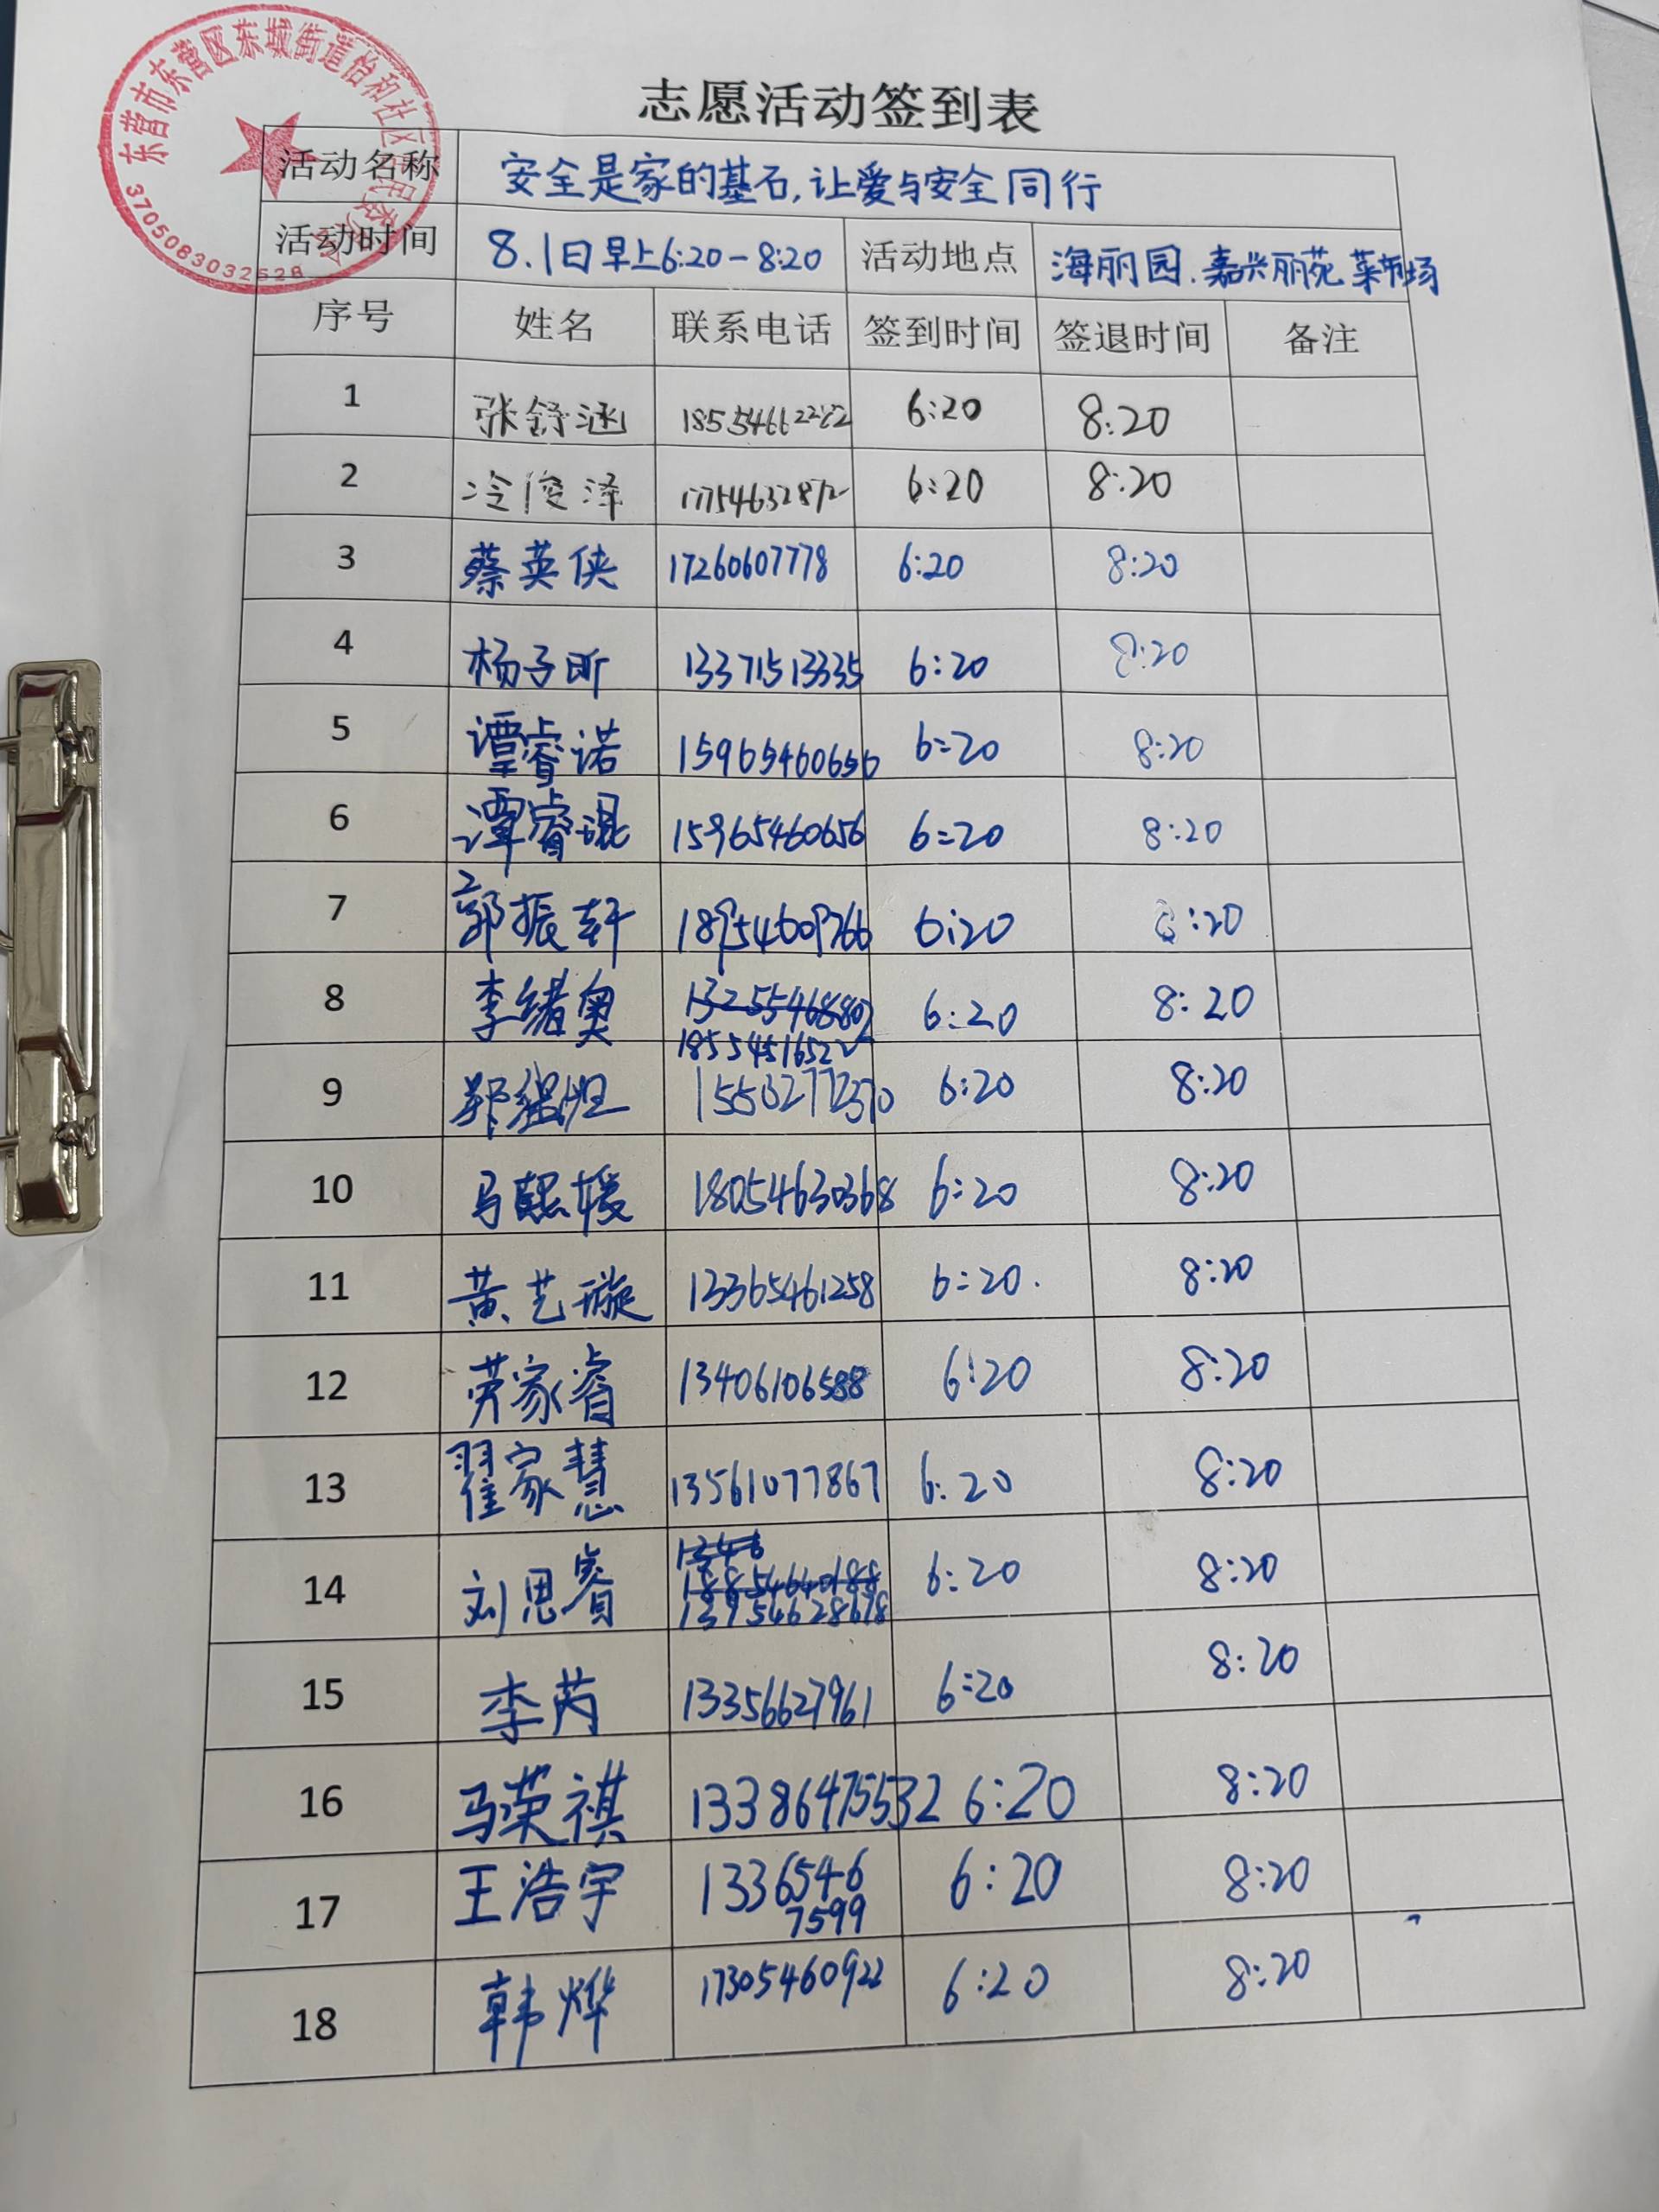 东营市东营区东城街道怡和社区居民委员会
3705083032528
志愿活动签到表
活动名称 安全是家的基石,让爱与安全同行
活动时间 8.1日早上6:20-8:20 活动地点 海丽园.嘉兴丽苑菜市场
序号 姓名 联系电话 签到时间 签退时间 备注
1 张舒涵 6:20 8:20
2 冷俊泽 6:20 8:20
3 蔡英侠 17260607778 6:20 8:20
4 杨子昕 13371513335 6:20 8:20
5 谭睿诺 15965460656 6:20 8:20
6 谭睿琨 15965460656 6:20 8:20
7 郭振轩 18954609766 6:20 8:20
8 李绪奥 13255468802 6:20 8:20
18554516522
9 15563277370 6:20 8:20
10 马熙媛 18054630368 6:20 8:20
11 黄艺璇 13365461258 6:20. 8:20
12 劳家睿 13406106588 6:20 8:20
13 翟家慧 13561077867 6:20 8:20
1346
14 刘思睿 18854640188 6:20 8:20
13954628678
15 李芮 13356627961 6:20 8:20
16 马荣祺 13386475532 6:20 8:20
17 王浩宇 1336546 6:20 8:20
7599
18 韩烨 17305460922 6:20 8:20